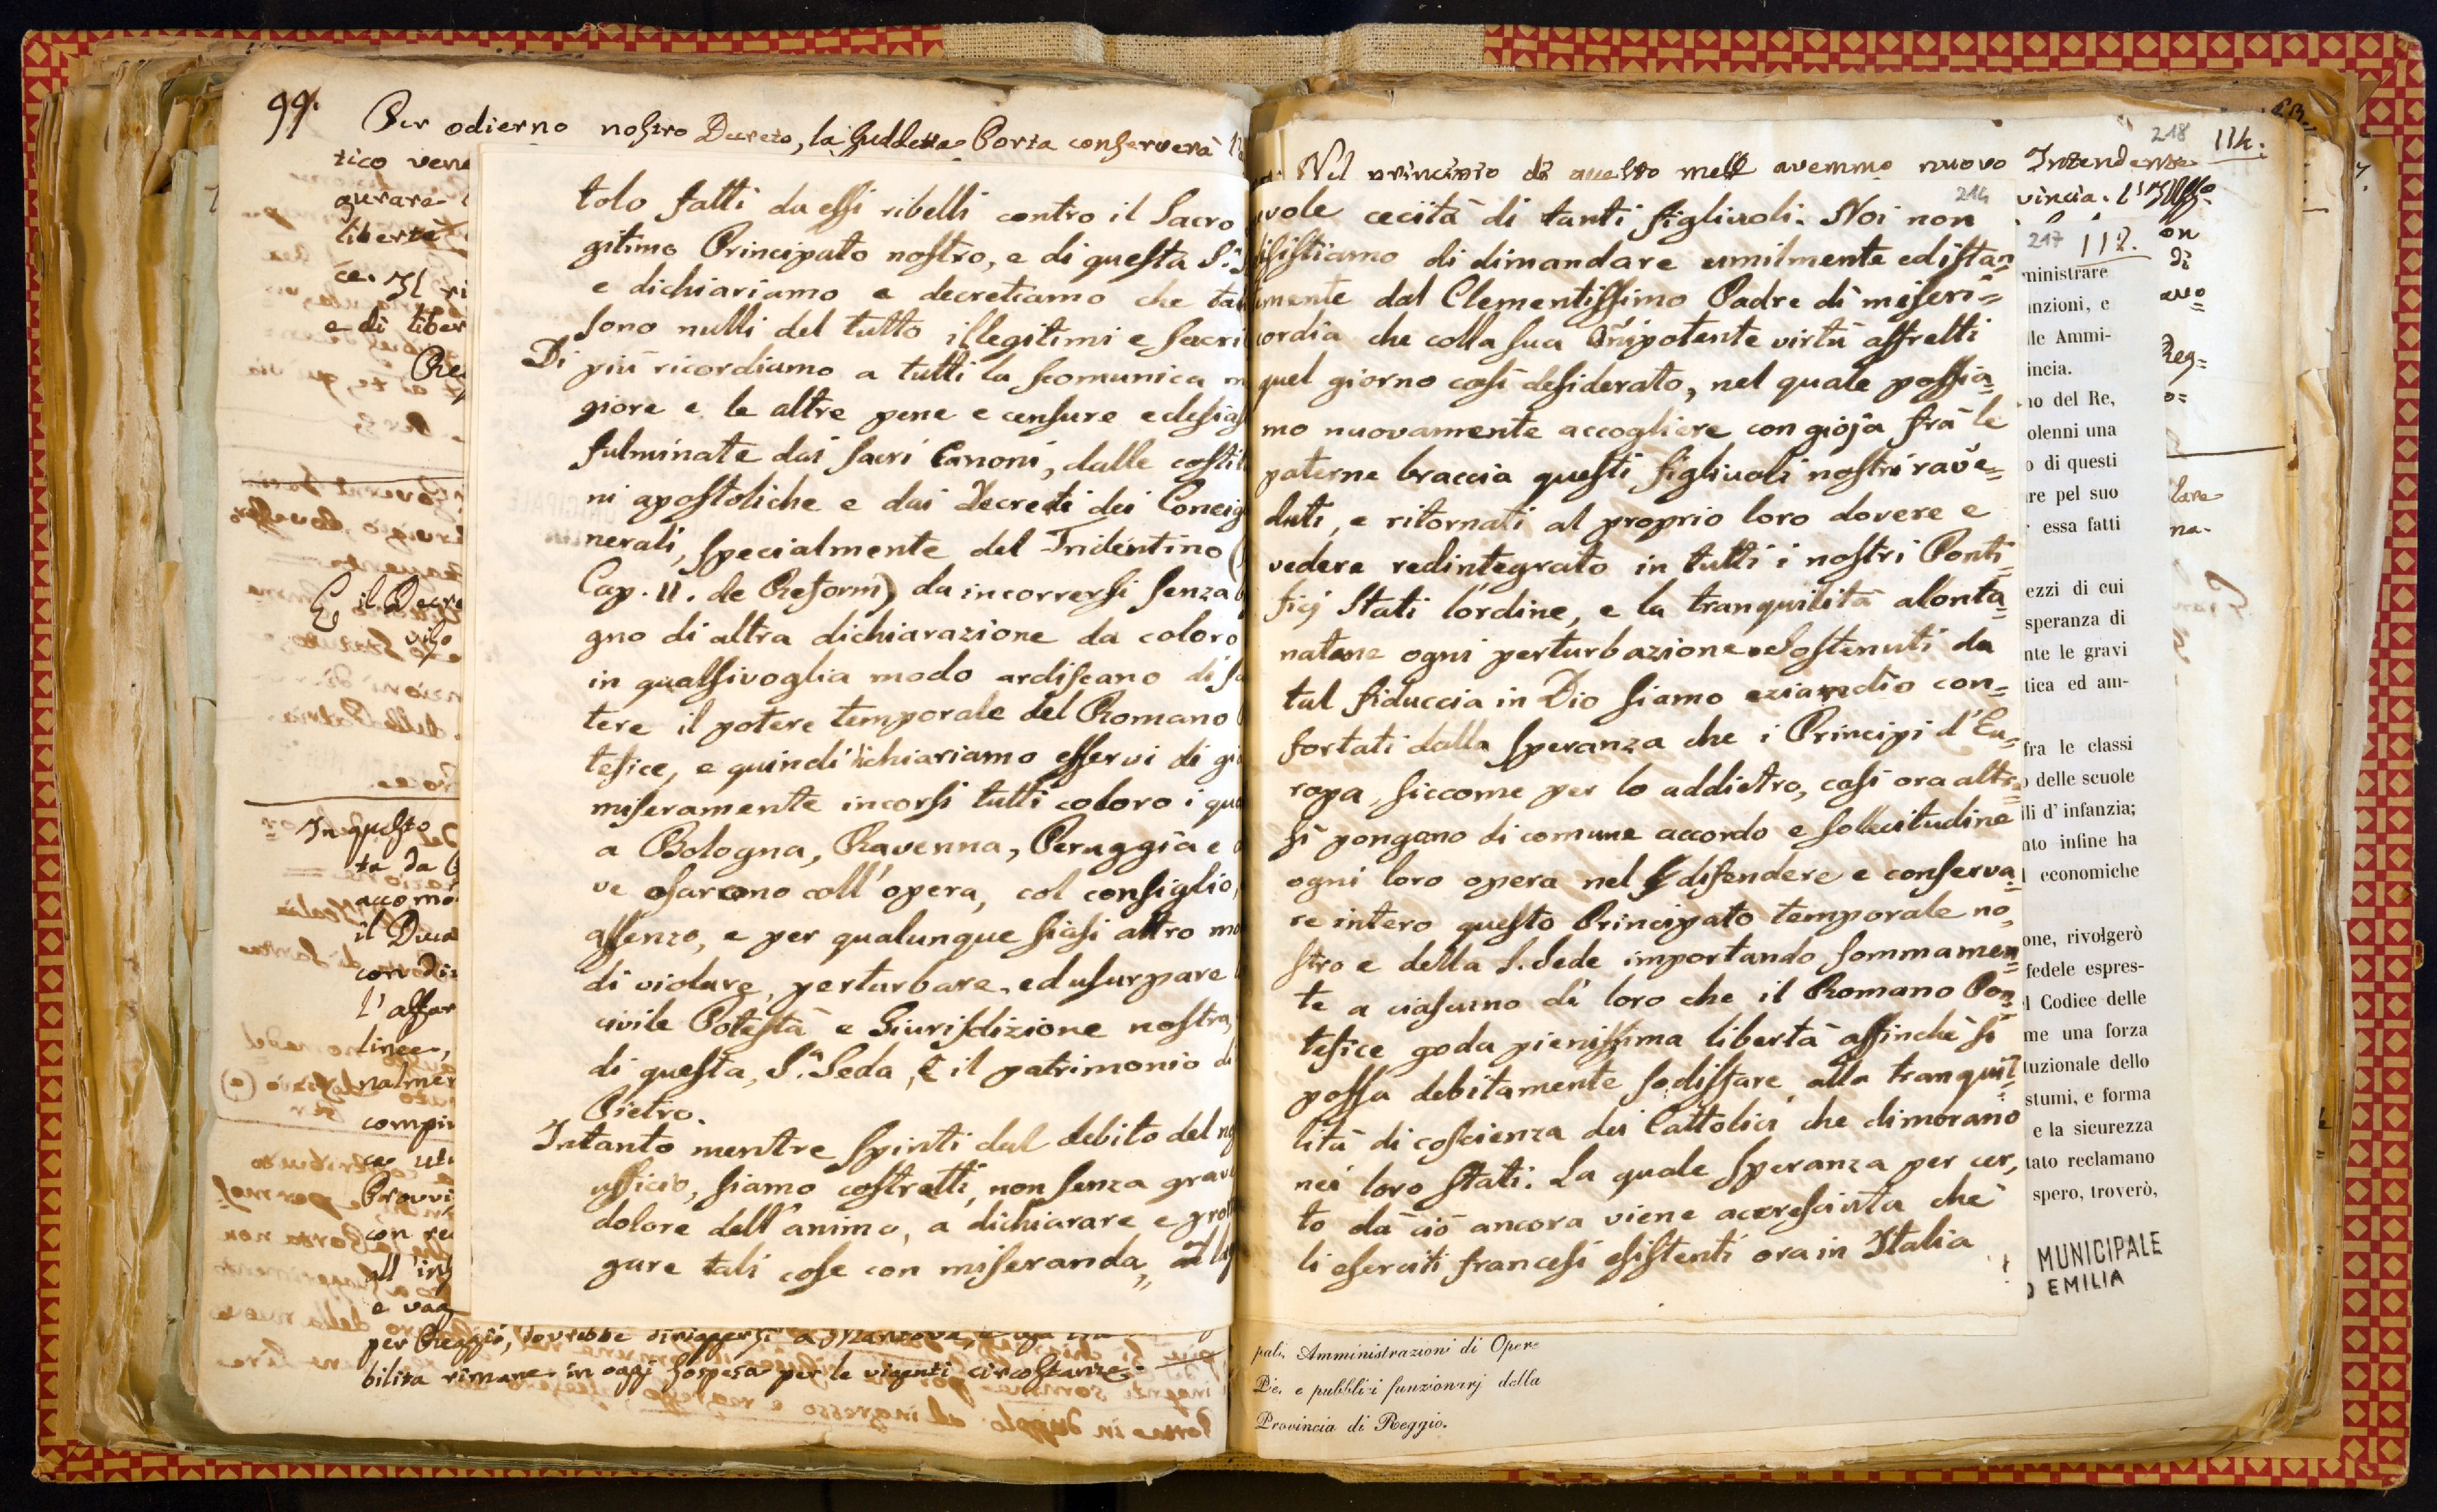 99.
Per odierno nostro Decreto, la suddetta Porta conserverà
tico vene
gurare
libertà
ce. Il ri
e di liber
Re
E, il Decre
In questo
ta da
accomo
il Duca
con di
l'affar
linee,
nalmen
compi
ce
Provvi
con re
all'in
e vag
per Reggio, dovrebbe dirigersi a Mantova,
bilita rimane in oggi sospesa per le vigenti circostanze.
tolo fatti da essi ribelli contro il Sacro
gitimo Principato nostro, e di questa S.a
e dichiariamo e decretiamo che tal
sono nulli del tutto illegitimi e sacri
Di più ricordiamo a tutti la scomunica m
giore e le altre pene e censure eclesias
fulminate dai sacri Canoni, dalle costit
ni apostoliche e dai Decreti dei Concig
nerali, specialmente del Tridentino (
Cap. 11. de Reform) da incorrersi senza b
gno di altra dichiarazione da coloro
in qualsivoglia modo ardiscano di s
tere il potere temporale del Romano
tefice, e quindi dichiariamo esservi di gi
miseramente incorsi tutti coloro i qua
a Bologna, Ravenna, Peruggia e
ve osarono coll'opera, col consiglio,
assenso, e per qualunque siasi altro mo
di violare, perturbare, ed usurpare
civile Potestà e Giurisdizione nostra,
di questa, S.a Seda, e il patrimonio di
Pietro.
Intanto mentre spinti dal debito del no
ufficio, siamo costretti, non senza grave
dolore dell'animo, a dichiarare e pro
gare tali cose con miseranda,
218
114.
Nel principio di questo mese avemmo nuovo Intendente
214
vole cecità di tanti figliuoli. Noi non
sistiamo di dimandare umilmente ed istan
mente dal Clementissimo Padre di miseri=
cordia che colla sua Onipotente virtù affretti
quel giorno così desiderato, nel quale possia=
mo nuovamente accogliere con gioja frà le
paterne braccia questi figliuoli nostri rave=
duti, e ritornati al proprio loro dovere e
vedere redintegrato in tutti i nostri Ponti=
ficj Stati l'ordine, e la tranquilità alonta=
natane ogni perturbazione. Sostenuti da
tal fiduccia in Dio siamo eziamdio con=
fortati dalla speranza che i Principi d'Eu=
ropa, siccome per lo addietro, così ora altre=
sì pongano di comune accordo e solecitudine
ogni loro opera nel difendere e conserva=
re intero questo Principato temporale no=
stro e della S. Sede importando sommamen=
te a ciascuno di loro che il Romano Pon=
tefice goda pienissima libertà affinchè si
possa debitamente sodisfare alla tranquil=
lità di coscienza dei Cattolici che dimorano
nei loro stati. La quale speranza per cer=
to da ciò ancora viene accresciuta che
li eserciti francesi esistenti ora in Italia
vincia. l'Illmo
217 112.
on
di
avo=
Reg=
o=
lare
na.
ministrare
nzioni, e
lle Ammi-
incia.
no del Re,
olenni una
o di questi
re pel suo
essa fatti
ezzi di cui
speranza di
nte le gravi
tica ed am-
fra le classi
o delle scuole
li d'infanzia;
nto infine ha
economiche
one, rivolgerò
fedele espres-
l Codice delle
me una forza
tuzionale dello
stumi, e forma
e la sicurezza
tato reclamano
spero, troverò,
MUNICIPALE
O EMILIA
pali, Amministrazioni di Opere
Pie, e pubblici funzionarj della
Provincia di Reggio.